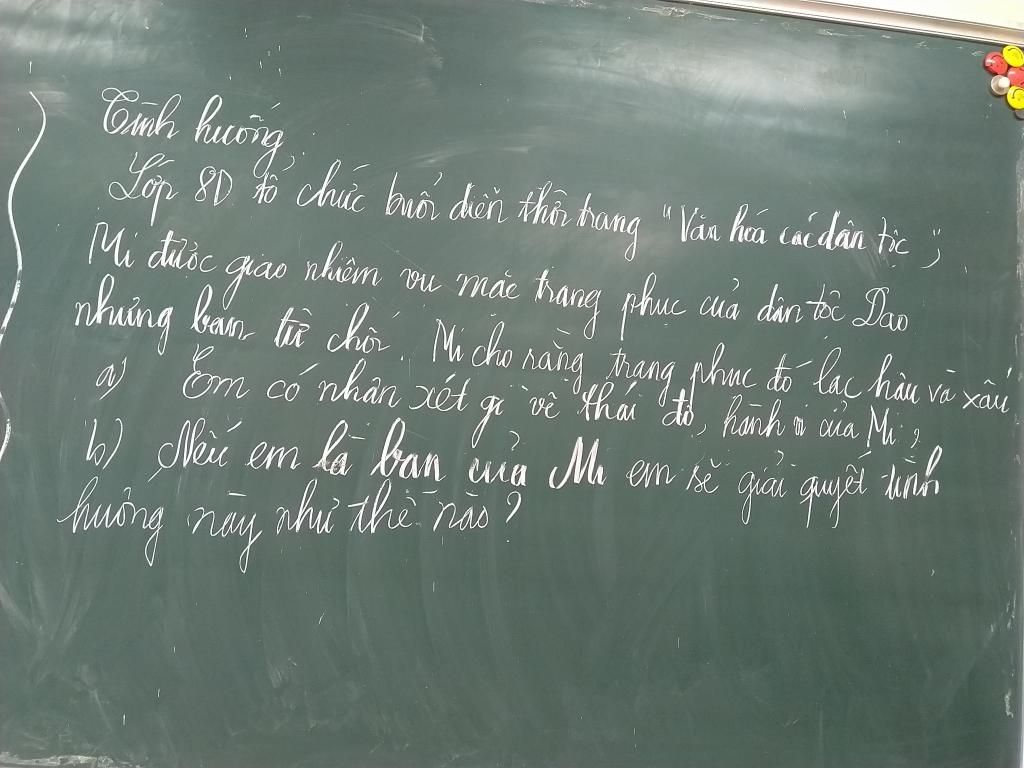 Tình huống
Lớp 8D tổ chức buổi diễn thời trang "Văn hóa các dân tộc",
Mi được giao nhiệm vụ mặc trang phục của dân tộc Dao
nhưng bạn từ chối. Mi cho rằng trang phục đó lạc hậu và xấu
a) Em có nhận xét gì về thái độ, hành vi của Mi?
b) Nếu em là bạn của Mi em sẽ giải quyết tình
huống này như thế nào?